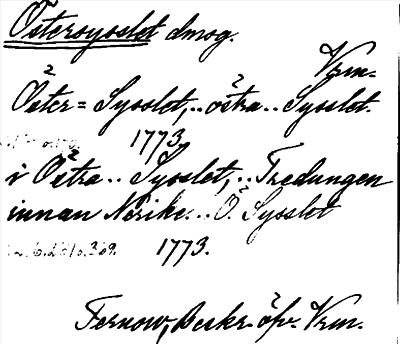 Östersysslet dmog.
Vrm.
Öster= Sysslet, .. östra .. Sysslet.
1773.
i Östra .. Sysslet, .. Tredungen
innan Nerike .. Ö. Sysslet
1773.
Fernow, Beskr. öfv. Vrm.